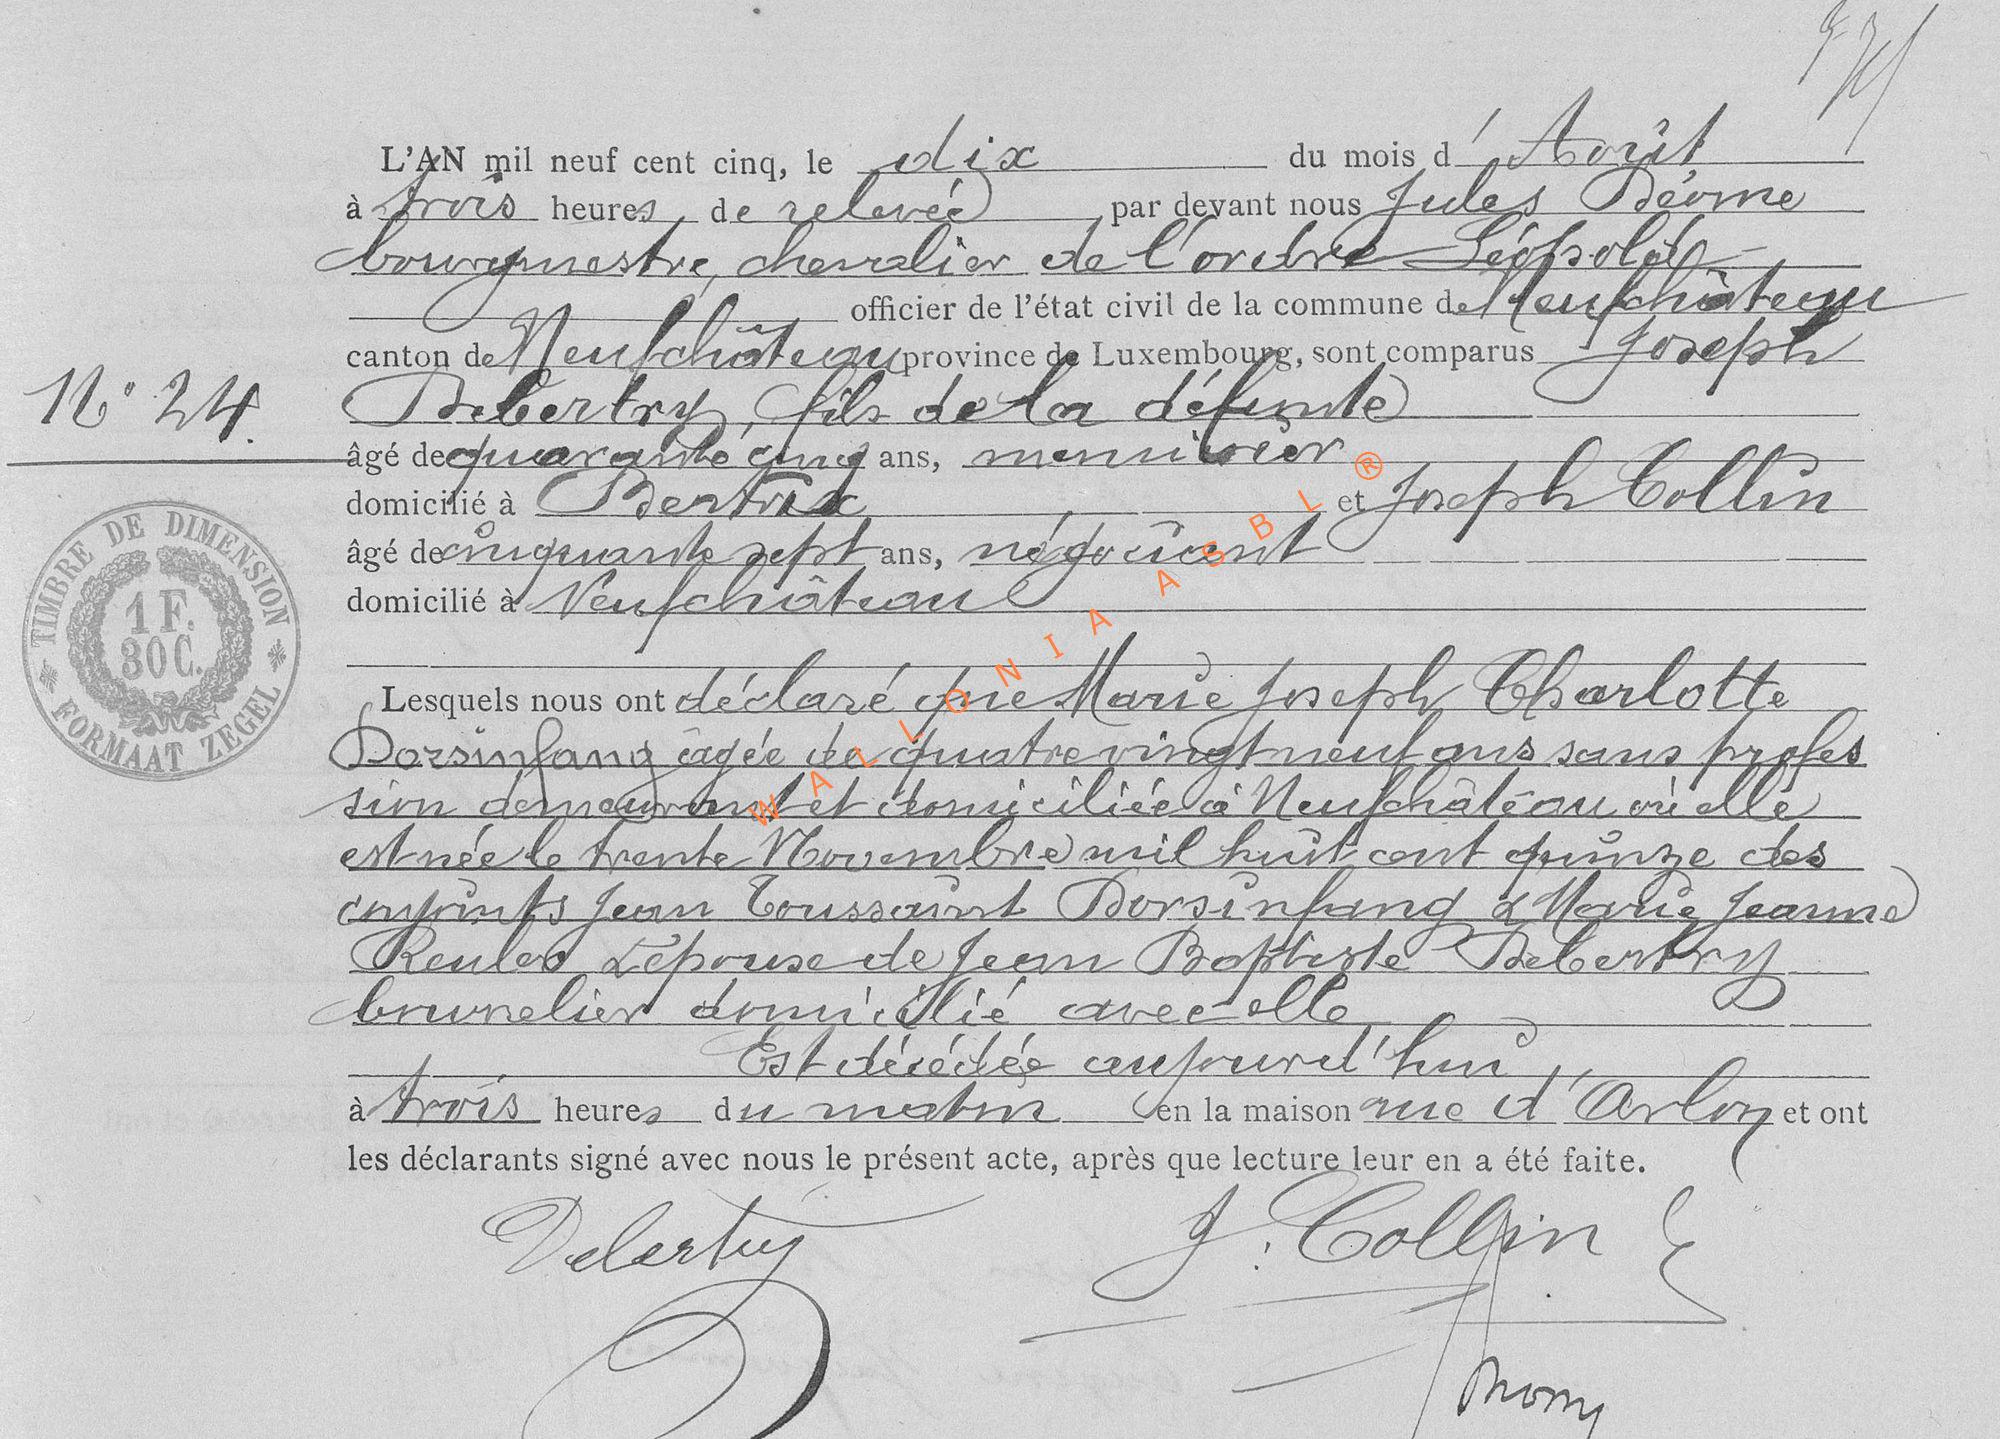 L'AN mil neuf cent cinq, le dix du mois d' Août
à trois heures de relevée par devant nous Jules
bourgmestre, chevalier de l'ordre Léopold
officier de l'état civil de la commune de Neufchâteau
canton de Neufchâteau province de Luxembourg, sont comparus Joseph
N° 24.
Debertry, fils de la défunte
âgé de quarante cinq ans, menuisier
domicilié à Bertrix et Joseph Collin
âgé de cinquante sept ans, négociant
domicilié à Neufchâteau
TIMBRE DE DIMENSION
1 F.
30 C.
FORMAAT ZEGEL
WALLONIA ASBL ®
Lesquels nous ont déclaré que Marie Joseph Charlotte
Dorsinfang âgée de quatre vingt neuf ans sans profes
sion demeurant et domiciliée à Neufchâteau où elle
est née le trente Novembre mil huit cent quinze des
conjoints Jean Toussaint Dorsinfang & Marie Jeanne
Reules épouse de Jean Baptiste Debertry
bourrelier domicilié avec elle
Est décédée aujourd'hui
à trois heures du matin en la maison rue d'Arlon et ont
les déclarants signé avec nous le présent acte, après que lecture leur en a été faite.
Debertry J. Collin